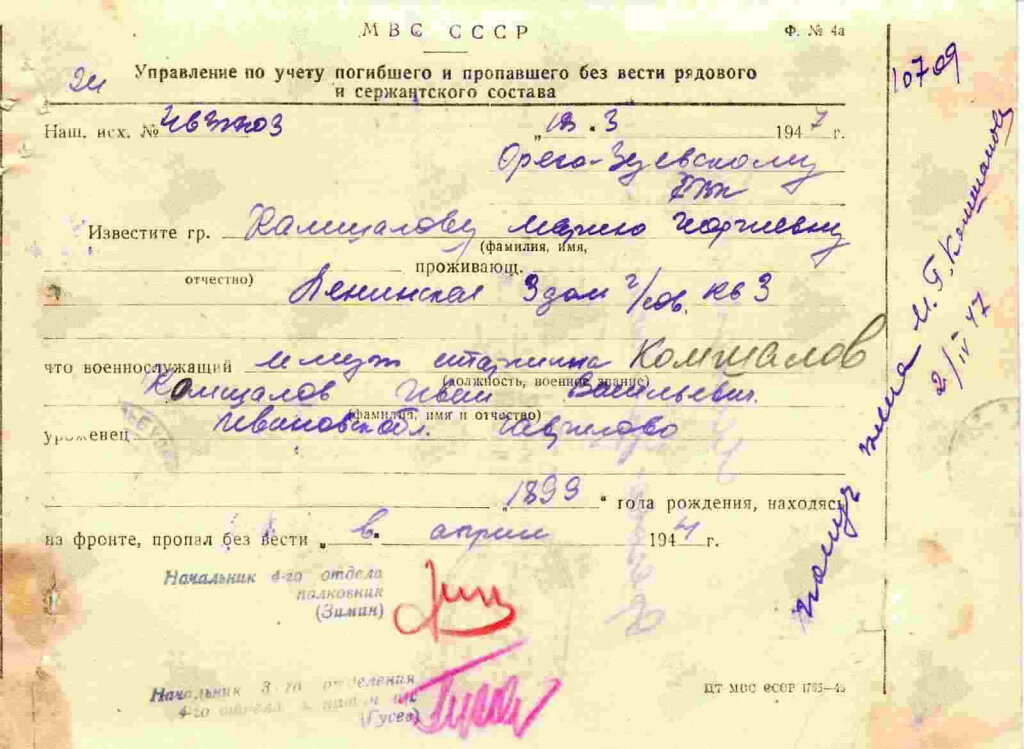 МВС СССР
Ф. № 4а
Управление по учету погибшего и пропавшего без вести рядового
и сержантского состава
10709
Наш. исх. №
„18“ 3 1947 г.
Орехо-Зуевскому
ГВК
Известите гр. Камшалову Марию Георгиевну
(фамилия, имя,
отчество) проживающ.
Ленинская 3 дом г/сов. кв 3
что военнослужащий муж старшина Комшалов
(должность, военное звание)
Комшалов Иван Васильевич.
(фамилия, имя и отчество)
уроженец Ивановск обл. Гаврилово
„1899“ года рождения, находясь
на фронте, пропал без вести „в“ апреле 1944 г.
Начальник 4-го отдела
полковник
(Зиман)
Начальник 3-го отделения
4-го отдела
(Гусев)
ЦТ МВС СССР 1785—46
получ жена М. Г. Комшалова
2/IV 47